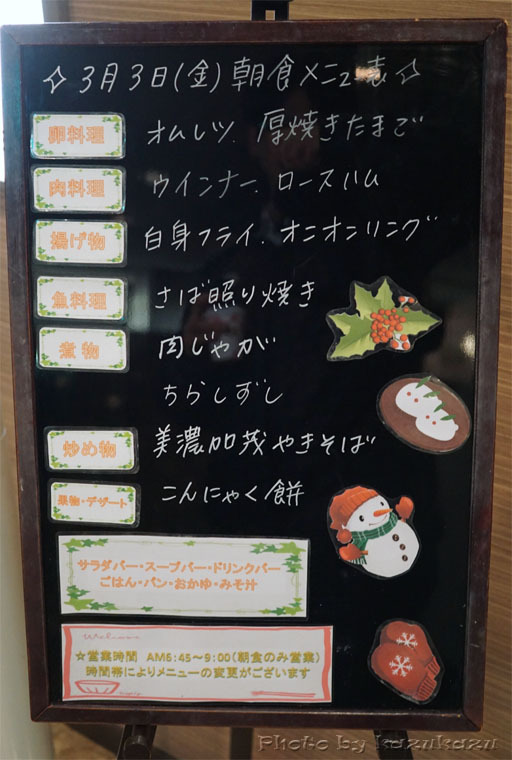 ☆3月3日(金)朝食メニュー表☆
卵料理 オムレツ、厚焼きたまご
肉料理 ウインナー、ロースハム
揚げ物 白身フライ、オニオンリング
魚料理 さば照り焼き
煮物 肉じゃが
ちらしずし
炒め物 美濃加茂やきそば
果物・デザート こんにゃく餅
サラダバー・スープバー・ドリンクバー
ごはん・パン・おかゆ・みそ汁
Welcome
☆営業時間 AM6:45～9:00(朝食のみ営業)
時間帯によりメニューの変更がございます
Photo by kazukazu